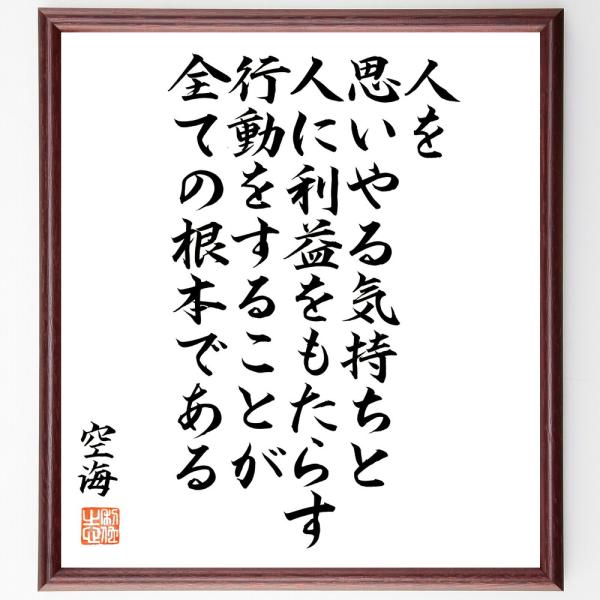 人を
思いやる気持ちと
人に利益をもたらす
行動をすることが
全ての根本である
空海